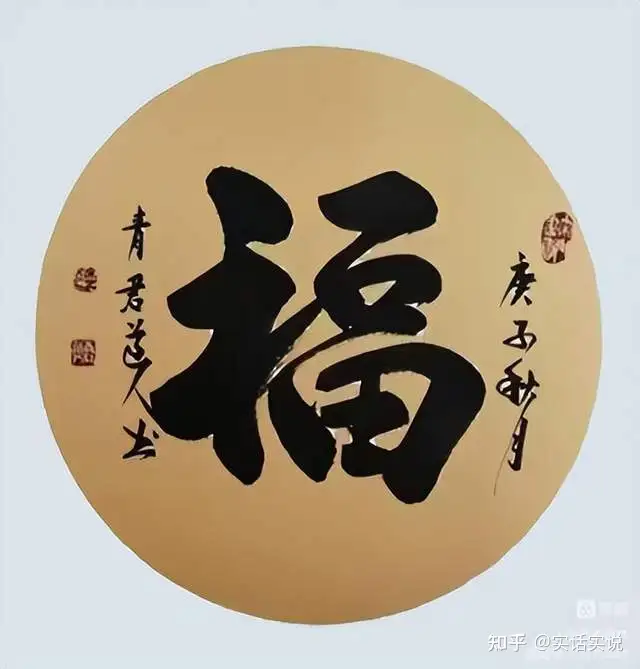 庚子秋月
福
青君道人书
知乎 @实话实说